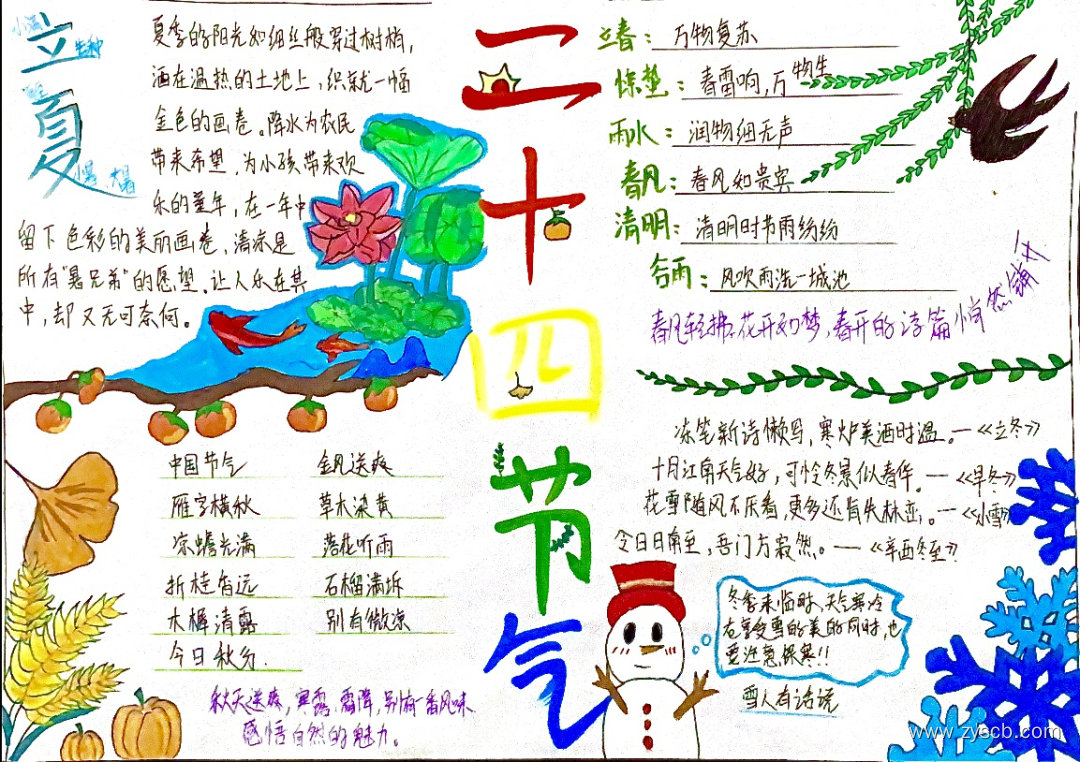 二十四节气
立夏
小满
芒种
小暑 大暑
夏季的阳光如细丝般穿过树梢,
洒在温热的土地上,织就一幅
金色的画卷。降水为农民
带来希望,为小孩带来欢
乐的童年,在一年中
留下色彩的美丽画卷,清凉是
所有"暑兄弟"的愿望。让人乐在其
中,却又无可奈何。
立春: 万物复苏
惊蛰: 春雷响,万物生
雨水: 润物细无声
春风: 春风如贵宾
清明: 清明时节雨纷纷
谷雨: 风吹雨洗一城池
春风轻拂,花开如梦,春开的诗篇悄然铺开
中国节气 金风送爽
雁字横秋 草木染黄
凉蟾光满 落花听雨
折桂香远 石榴满坼
木樨清露 别有微凉
今日秋分
秋天送爽,寒露,霜降,别有一番风味
感悟自然的魅力。
冻笔新诗懒写,寒炉美酒时温。—《立冬》
十月江南天气好,可怜冬景似春华。—《早冬》
花雪随风不厌看,更多还肯失林峦。—《小雪》
今日日南至,吾门方寂然。—《辛酉冬至》
冬季来临时,天气寒冷
在享受雪的美的同时,也
要注意保寒!!
雪人有话说
www.zyecb.com